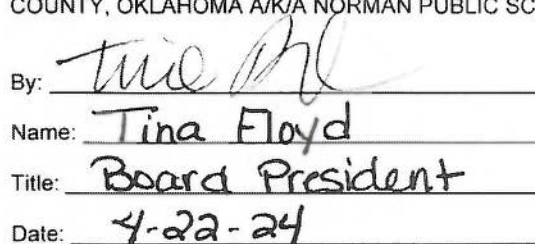 COUNTY, OKLAHOMA A/K/A NORMAN PUBLIC SC
By:
Name: Tina Floyd
Title: Board President
Date: 4-22-24